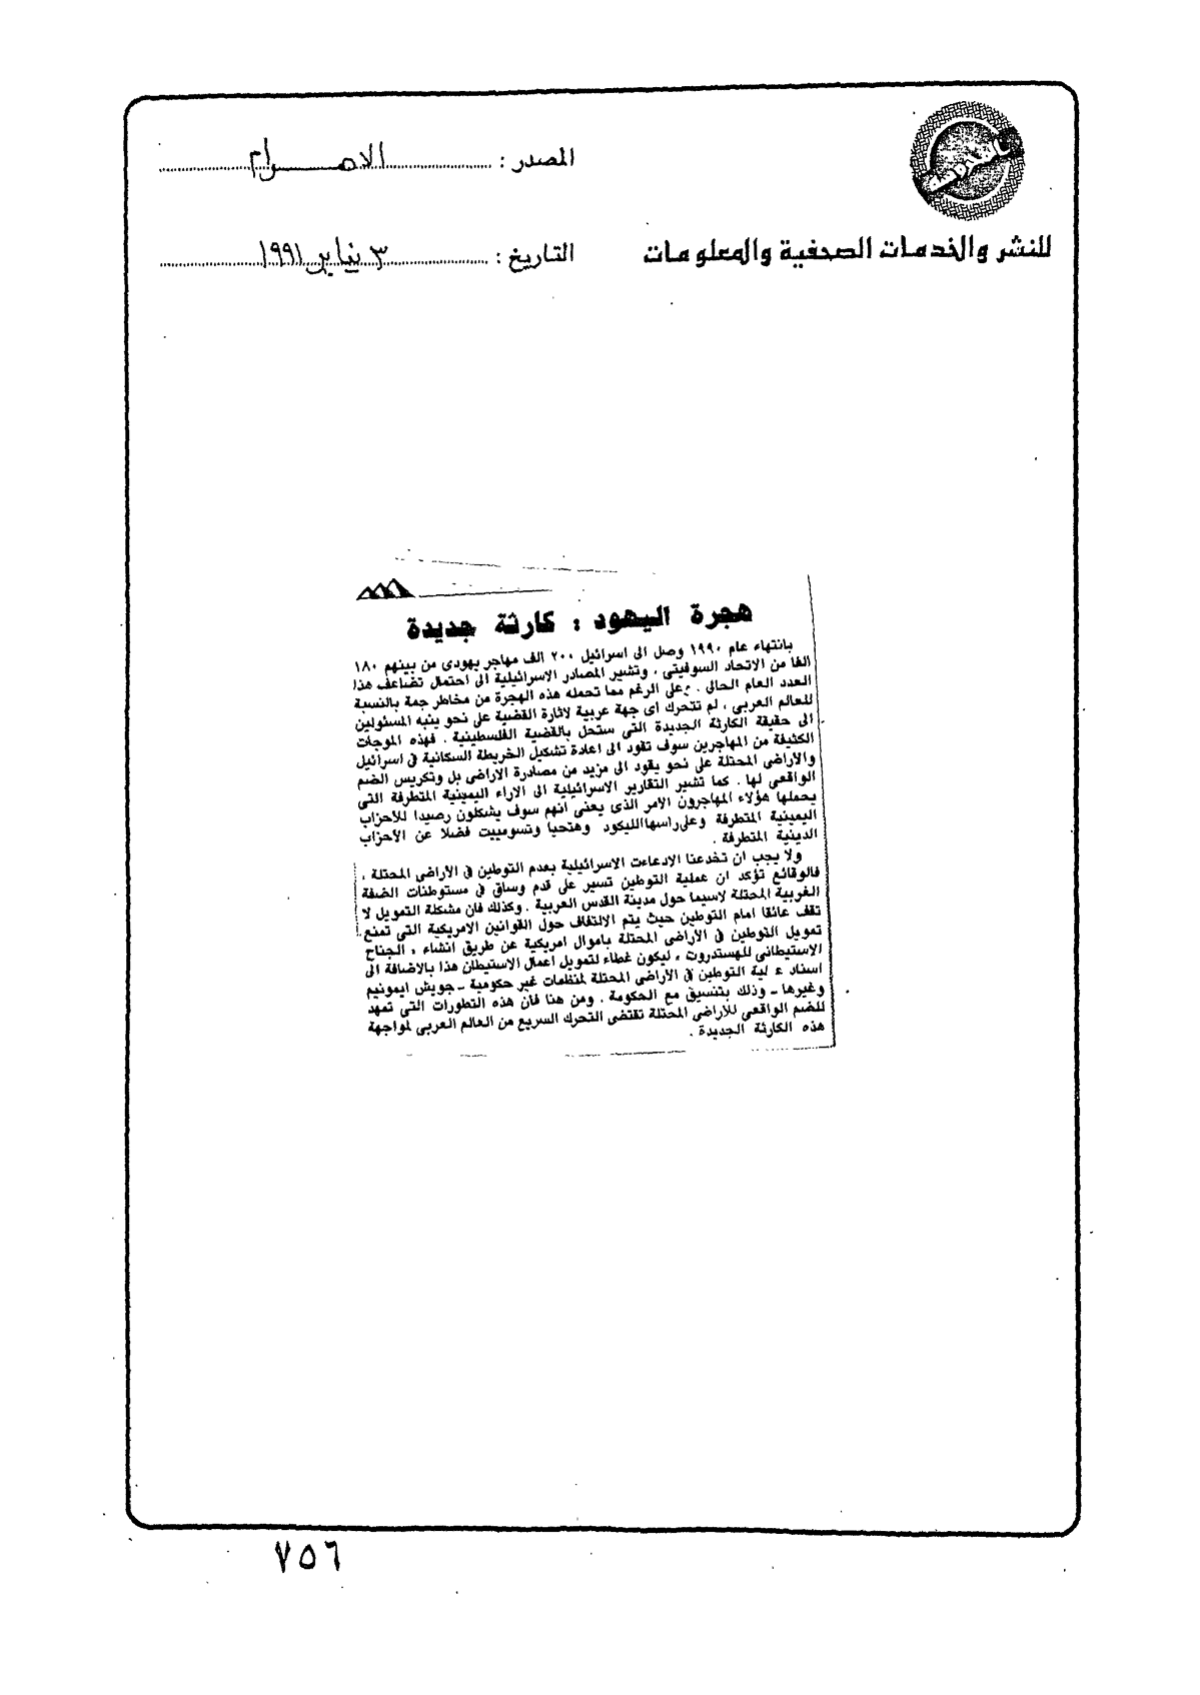 المصدر : الاهرام
للنشر والخدمات الصحفية والمعلومات
التاريخ : ٣ يناير ١٩٩١
هجرة اليهود : كارثة جديدة
بانتهاء عام ١٩٩٠ وصل الى اسرائيل ٢٠٠ الف مهاجر يهودى من بينهم ١٨٠
الفا من الاتحاد السوفيتى ، وتشير المصادر الاسرائيلية الى احتمال تضاعف هذا
العدد العام الحالى . وعلى الرغم مما تحمله هذه الهجرة من مخاطر جمة بالنسبة
للعالم العربى ، لم تتحرك اى جهة عربية لاثارة القضية على نحو ينبه المسئولين
الى حقيقة الكارثة الجديدة التى ستحل بالقضية الفلسطينية . فهذه الموجات
الكثيفة من المهاجرين سوف تقود الى اعادة تشكيل الخريطة السكانية فى اسرائيل
والاراضى المحتلة على نحو يقود الى مزيد من مصادرة الاراضى بل وتكريس الضم
الواقعى لها . كما تشير التقارير الاسرائيلية الى الاراء اليمينية المتطرفة التى
يحملها هؤلاء المهاجرون الأمر الذى يعنى انهم سوف يشكلون رصيدا للأحزاب
اليمينية المتطرفة وعلى راسها الليكود وهتحيا وتسوميت فضلا عن الأحزاب
الدينية المتطرفة .
ولا يجب ان تخدعنا الإدعاءت الاسرائيلية بعدم التوطين فى الأراضى المحتلة ،
فالوقائع تؤكد ان عملية التوطين تسير على قدم وساق فى مستوطنات الضفة
الغربية المحتلة لاسيما حول مدينة القدس العربية . وكذلك فان مشكلة التمويل لا
تقف عائقا امام التوطين حيث يتم الالتفاف حول القوانين الامريكية التى تمنع
تمويل التوطين فى الأراضى المحتلة باموال امريكية عن طريق انشاء ، الجناح
الاستيطانى للهستدروت ، ليكون غطاء لتمويل اعمال الاستيطان هذا بالاضافة الى
اسناد ع لية التوطين فى الأراضى المحتلة لمنظمات غير حكومية - جويش ايمونيم
وغيرها - وذلك بتنسيق مع الحكومة . ومن هنا فان هذه التطورات التى تمهد
للضم الواقعى للأراضى المحتلة تقتضى التحرك السريع من العالم العربى لمواجهة
هذه الكارثة الجديدة .
٧٥٦